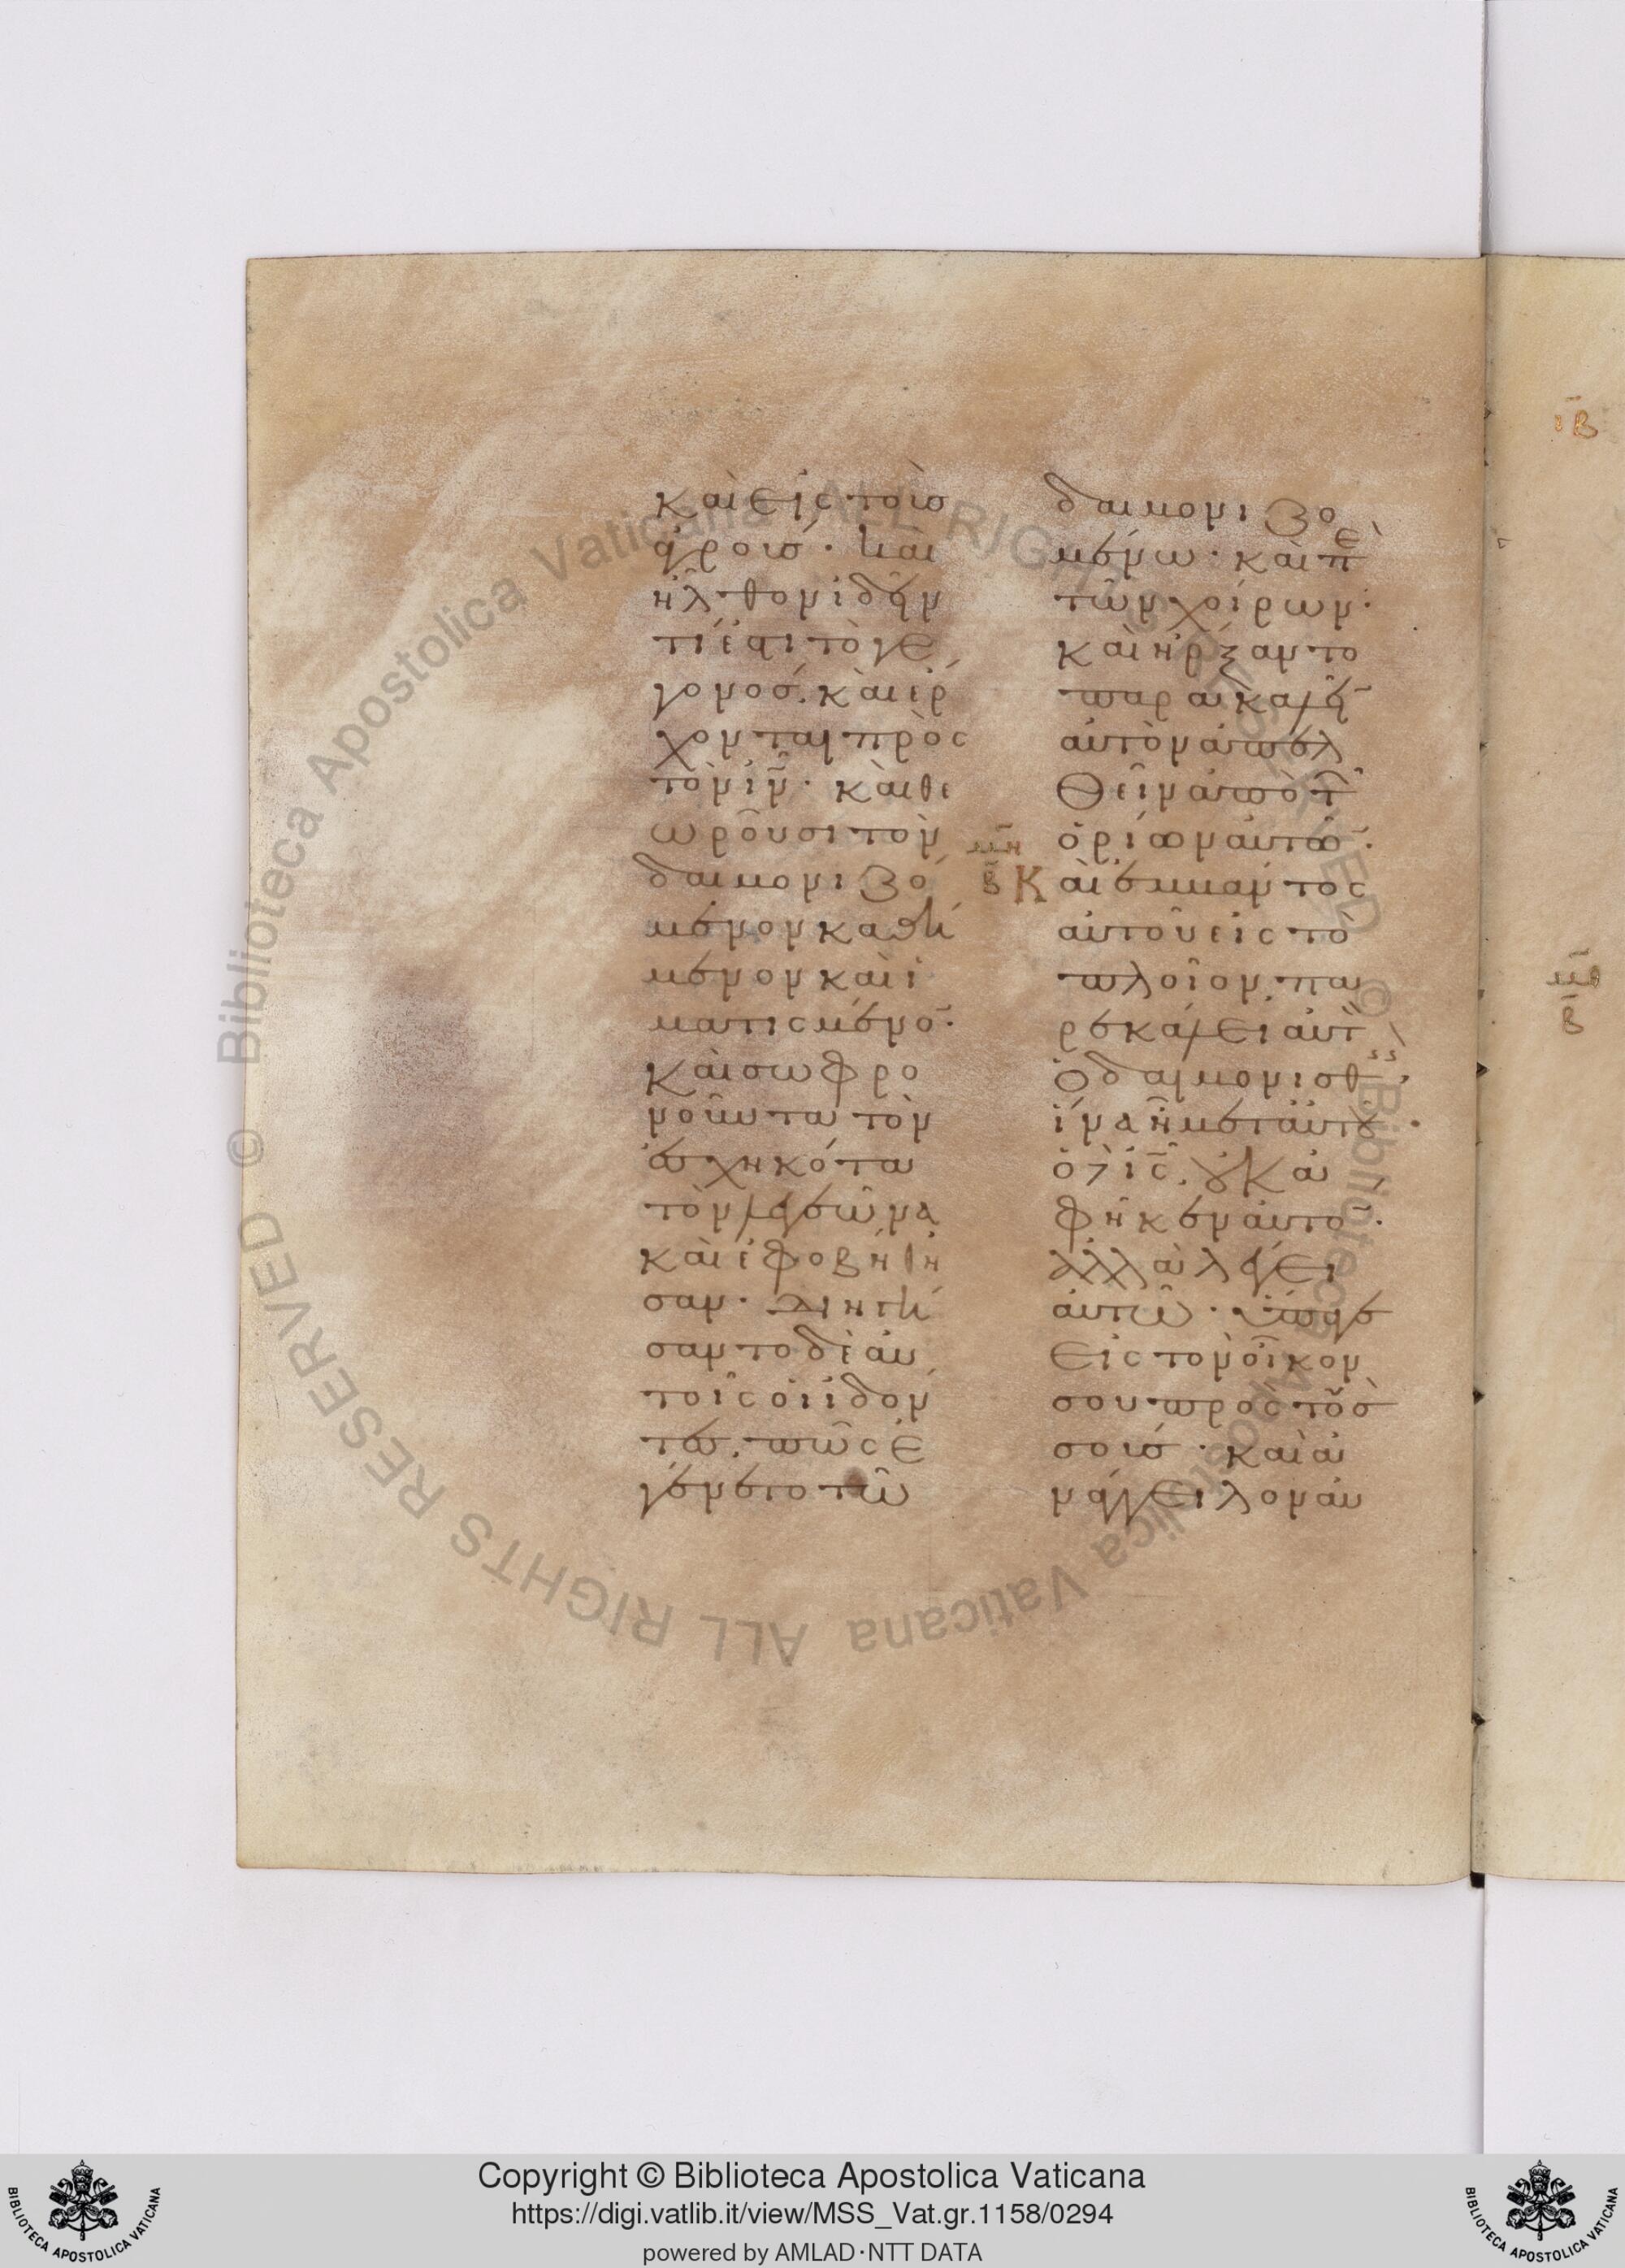 καὶ εἰς τοὺσ
ἀγρούσ· καὶ
ἦλθον ἰδεῖν
τί ἐστι τὸ γε
γονοσ· καὶ ἔρ
χονται πρὸς
τὸν ι̅ν̅· καὶ θε
ωροῦσι τὸν
δαιμονιζό
μενον καθή
μενον καὶ ἱ
ματισμένο̅·
καὶ σωφρο
νοῦντα τὸν
ἐσχηκότα
τὸν λεγεῶνα
καὶ ἐφοβήθη
σαν· διηγή
σαντο δὲ αὐ
τοῖς οἱ ἰδόν
τες, πῶς ἐ
γένετο τῶ
δαιμονιζο
μένω· καὶ πε
τῶν χοίρων·
καὶ ἤρξαντο
παρακαλεῖ̅
αὐτὸν ἀπελ
θεῖν ἀπὸ τ
ὁρίων αὐτῶ̅·
μη
β Καὶ ἐμβάντος
αὐτοῦ εἰς τὸ
πλοῖον, πα
ρεκάλει αὐτ
ὁ δαιμονισθ
ἵνα ἦ μετ αὐτ
ὁ δὲ ι̅ς̅, οὐκ ἀ
φῆκεν αὐτο̅·
ἀλλὰ λέγει
αὐτῶ· ὕπαγε
εἰς τὸν οἶκον
σου πρὸς τοὺσ
σούσ· καὶ ἀ
νάγγειλον αὐ
ιβ
β
Copyright © Biblioteca Apostolica Vaticana
https://digi.vatlib.it/view/MSS_Vat.gr.1158/0294
powered by AMLAD·NTT DATA
BIBLIOTECA APOSTOLICA VATICANA
BIBLIOTECA APOSTOLICA VATICANA
© Biblioteca Apostolica Vaticana ALL RIGHTS RESERVED
© Biblioteca Apostolica Vaticana ALL RIGHTS RESERVED